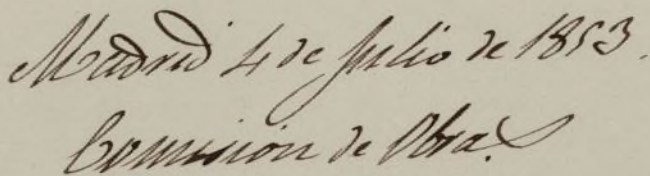 Madrid 4 de Julio de 1853.
Comision de Obras